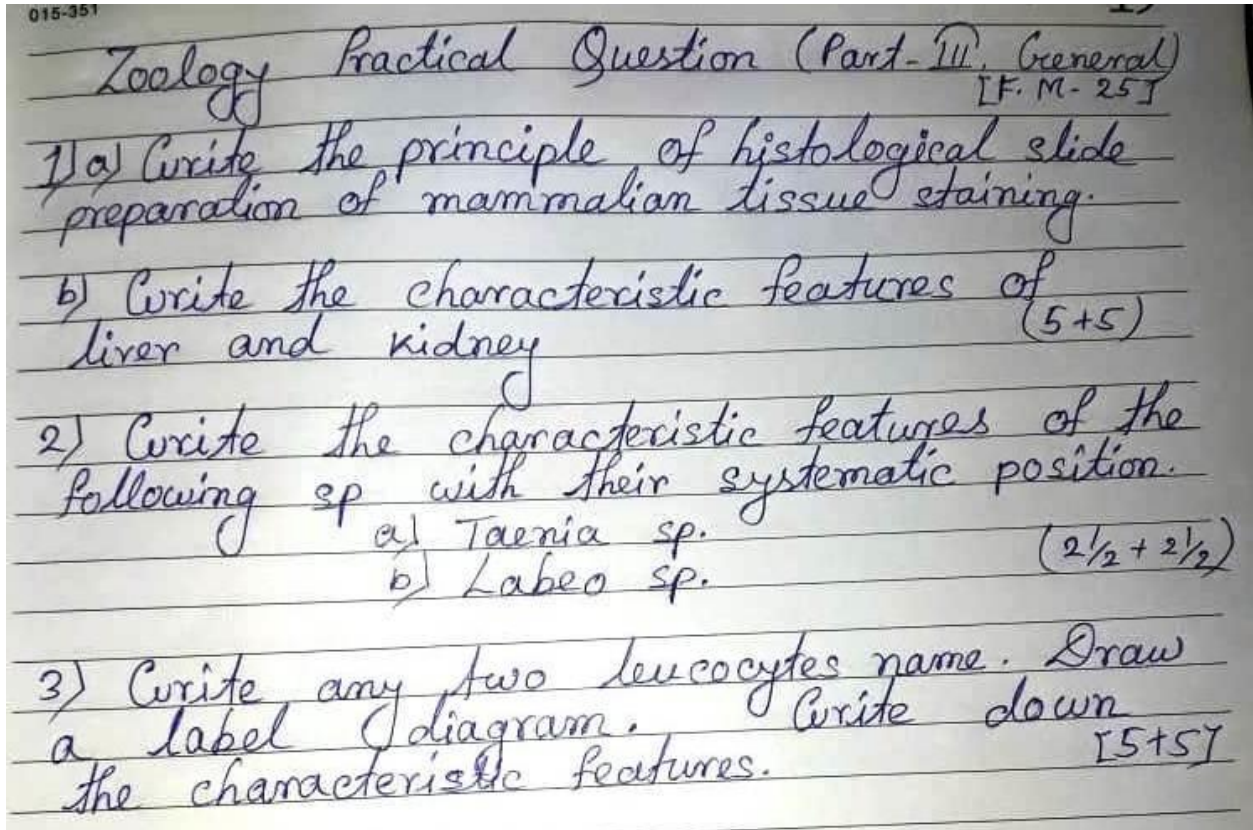 015-351
Zoology Practical Question (Part-III, General)
[F. M- 25]
1) a) Write the principle of histological slide
preparation of mammalian tissue staining.
b) Write the characteristic features of
liver and kidney (5+5)
2) Write the characteristic features of the
following sp with their systematic position.
a) Taenia sp.
b) Labeo sp. (2½ + 2½)
3) Write any two leucocytes name. Draw
a label diagram. Write down
the characteristic features. [5+5]